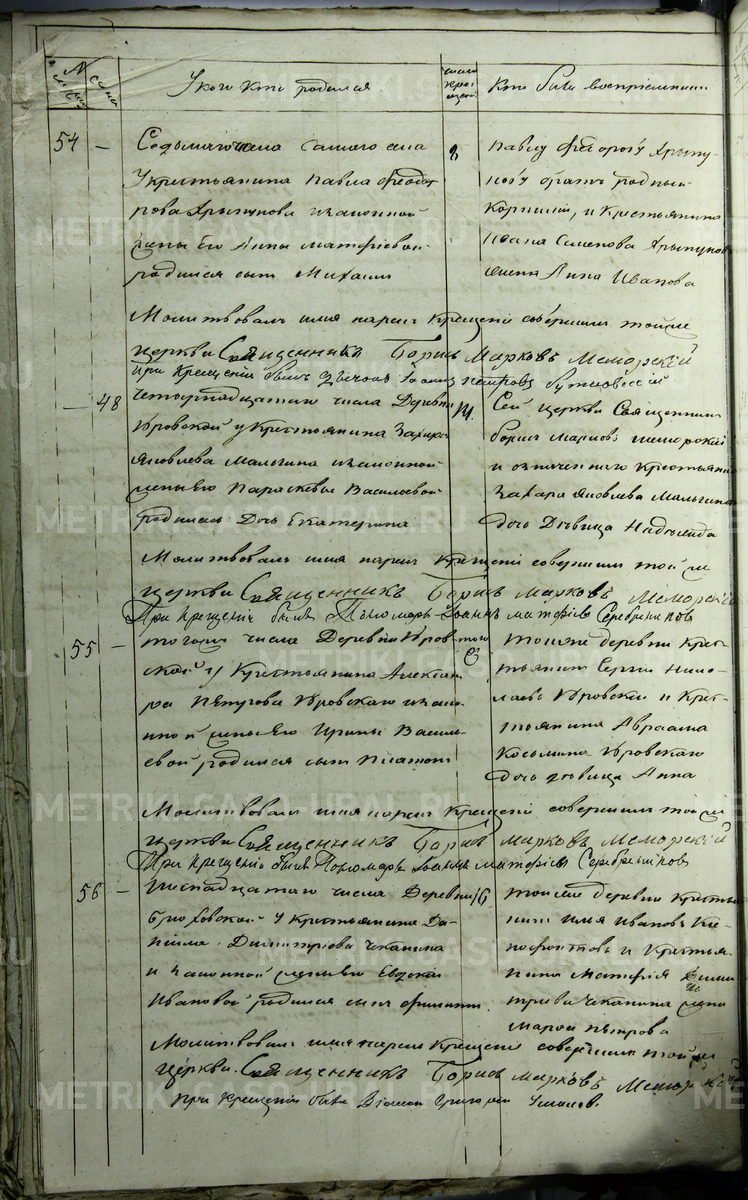 У кого кто родился
Кто были восприемники
54
Седьмагочисла самаго села
У крестьянина Павла Феодо
рова законной
жены Его Анны Матфiевой
родился сынъ Михаилъ
8
Павлу Феодорову
братъ родный
Корнилiй, и Крестьянина
Ивана Семенова
жена Анна Иванова
Молитвовалъ имя нарекъ Крещенiе совершилъ тойже
церкви Священникъ Борисъ Марковъ Меморскiй
при Крещенiи былъ Дьячокъ Iоаннъ Петровъ
48
Четырнадцатаго числа Деревни
Юровской у Крестьянина Захара
Яковлева Малыгина изаконной
жены Его Параскевы Василевой
родилась Дочь Екатерина
14
Сей церкви Священникъ
Борисъ Марковъ Меморскiй
и означеннаго Крестьянина
Захара Яковлева Малыгина
дочь Дѣвица Надежда
Молитвовалъ имя нарекъ Крещенiе совершилъ тойже
церкви Священникъ Борисъ Марковъ Меморскiй
При крещенiи былъ Пономарь Iоаннъ Матфiевъ Серебрениковъ
55
тогоже числа Деревни Юров
ской у Крестьянина Алексан
ра Петрова Юровскаго изако
нной жены Его Ирины Василь
евой родился сынъ Платонъ
тойже деревни Крес
тьянинъ Сергiй Нико
лаевъ Юровской и Крес
тьянина Авраама
Косьмина Юровскаго
дочь дѣвица Анна
Молитвовалъ имя нарекъ Крещенiе совершилъ тойже
церкви Священникъ Борисъ Марковъ Меморскiй
При крещенiи былъ Пономарь Iоаннъ Матфiевъ Серебрениковъ
56
Шестнадцатаго числа Деревни
Ероховской У Крестьянина Да
нiила Димитрiева Чеканина
и законной жены Его Евдокiи
Ивановой родился сынъ Филиппъ
16
тойже деревни Крестья
нинъ Илья Ивановъ
и Крестья
нина Матфiя Дими
трiева Чеканина жена
Марфа Петрова
Молитвовалъ имя нарекъ Крещенiе совершилъ тойже
церкви Священникъ Борисъ Марковъ Меморскiй
При крещенiи былъ Дiаконъ Григорiй
METRIKI.GASO-URAL.RU